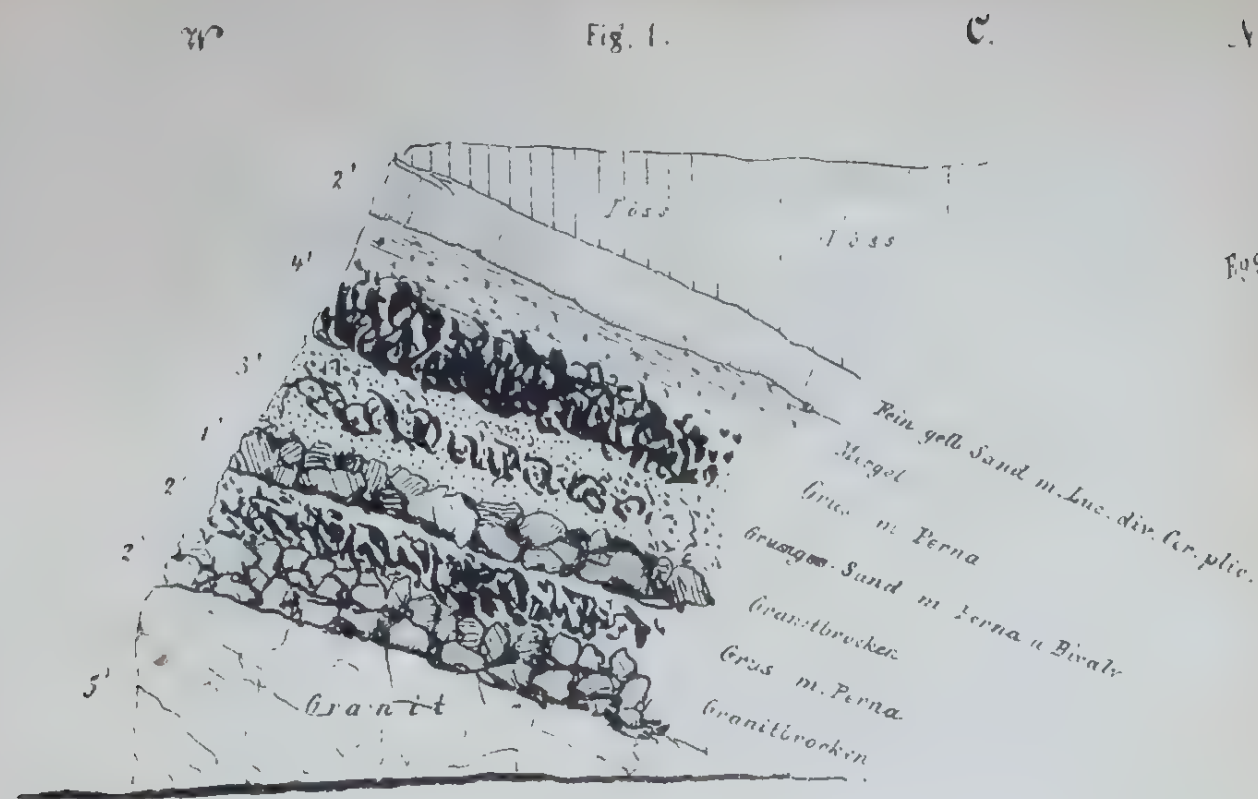 W Fig. 1. C. N
2'
Löss
Löss
4'
3'
1'
2'
2'
5'
Fein gelb Sand m. Luc. div. Cer. plic.
Mergel
Grus m Perna
Grusiger Sand m Perna u Bivalv
Granitbrocken
Grus m. Perna
Granitbrocken
Granit